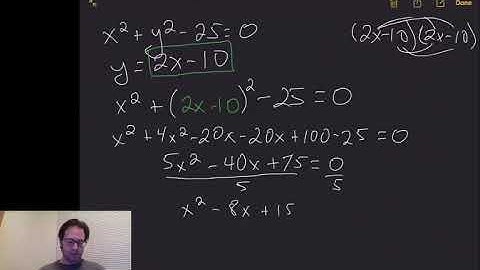 Done
x² + y² - 25 = 0
(2x-10)(2x-10)
y = 2x - 10
x² + (2x-10)² - 25 = 0
x² + 4x² - 20x - 20x + 100 - 25 = 0
5x² - 40x + 75 = 0
5 5
x² - 8x + 15